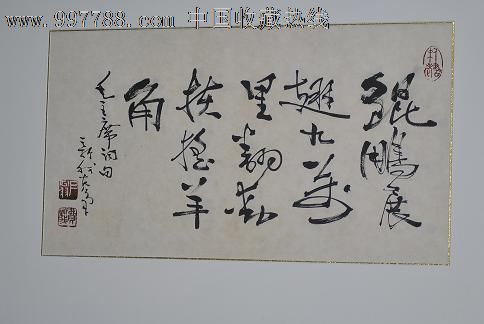 www.997788.com 中国收藏热线
鯤鵬展
翅九萬
里翻動
扶搖羊
角
毛主席詞句